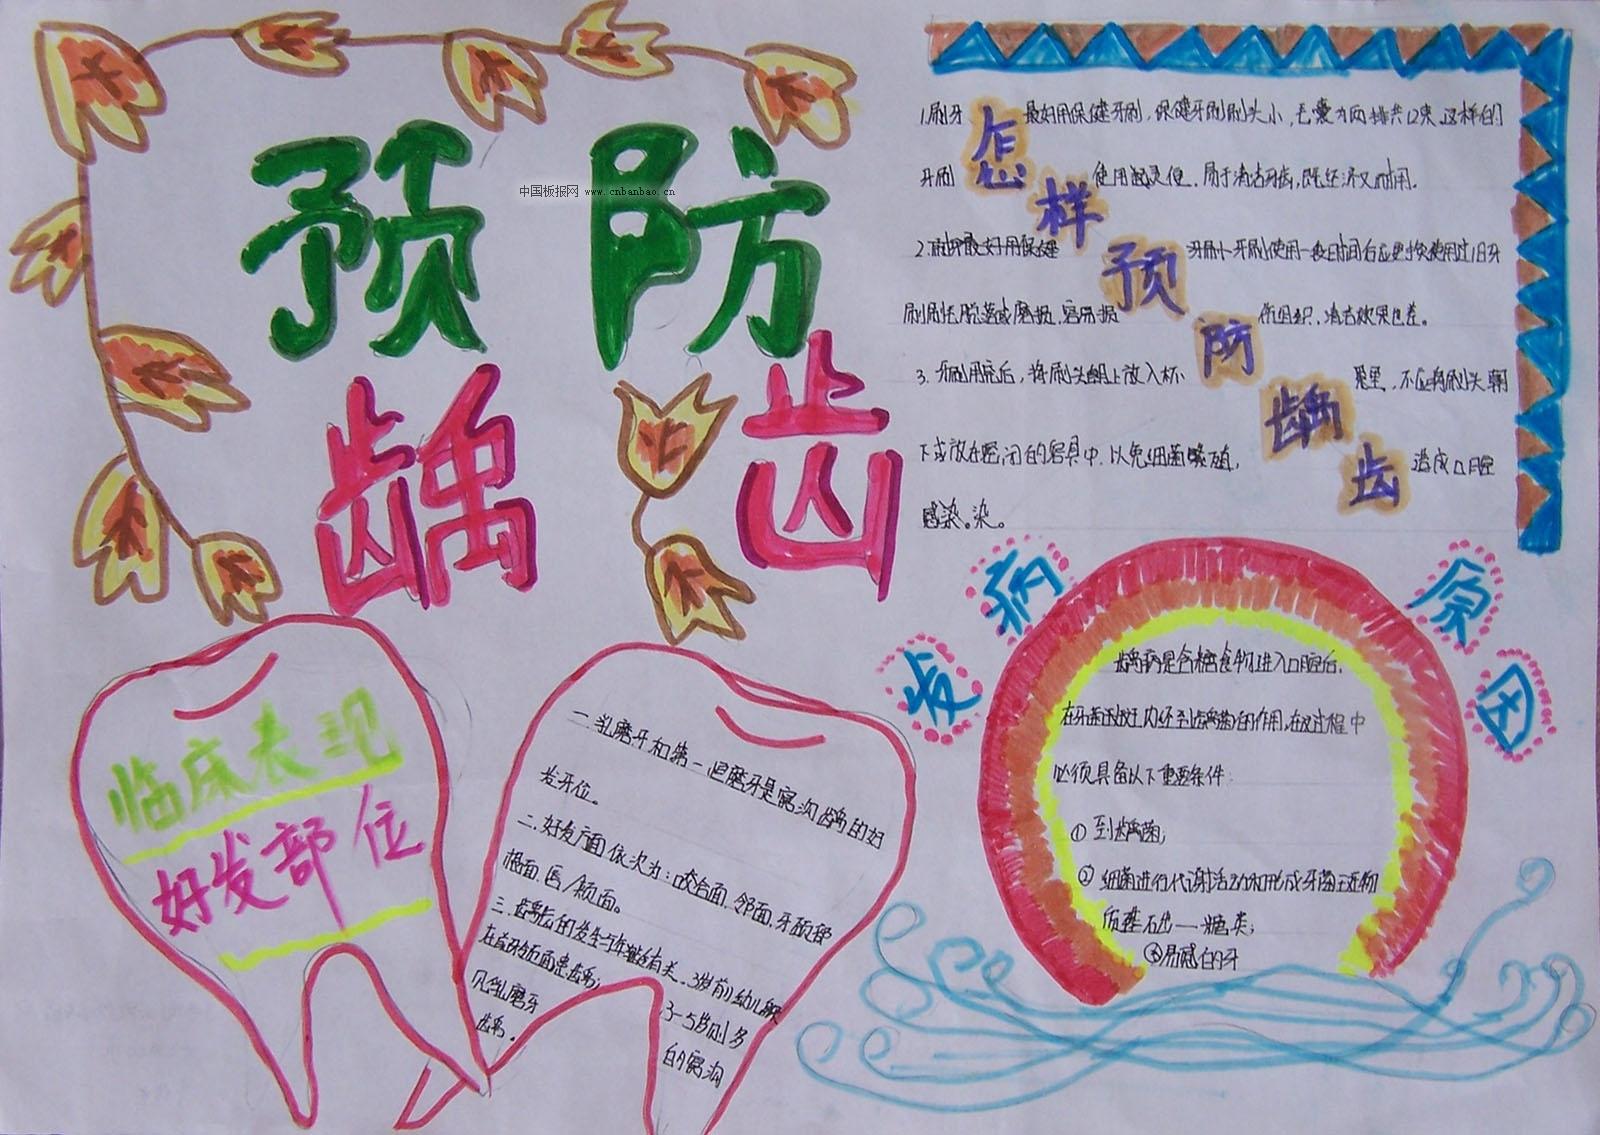 预防
龋齿
中国板报网 www.cnbanbao.cn
怎样预防龋齿
1.刷牙最好用保健牙刷,保健牙刷刷头小,毛囊为两排共12束,这样的
牙刷使用起灵便.易于清洁牙齿,既经济又耐用.
2.刷牙最好用保健牙刷.牙刷使用一段时间后应更换使用过旧牙
刷刷毛脱落或磨损,容易损伤组织,清洁效果也差。
3.牙刷用完后,将刷头朝上放入杯里,不应将刷头朝
下或放在密闭的容具中.以免细菌繁殖,造成口腔
感染。染。
发病原因
龋病是含糖食物进入口腔后,
在牙菌斑内经到龋菌的作用,在这过程中
必须具备以下重要条件:
①到龋菌;
②细菌进行代谢活动和形成牙菌斑物
质基石出——糖类;
③易感的牙
临床表现
好发部位
一.乳磨牙和第一恒磨牙是窝沟龋的好
发牙位。
二.好发方面依次为:咬合面.邻面.牙颈
根面.唇/颊面。
三.龋齿的发生与年龄有关.3岁前幼儿
在前牙邻面患龋;3-5岁则多
见乳磨牙的窝沟
龋。